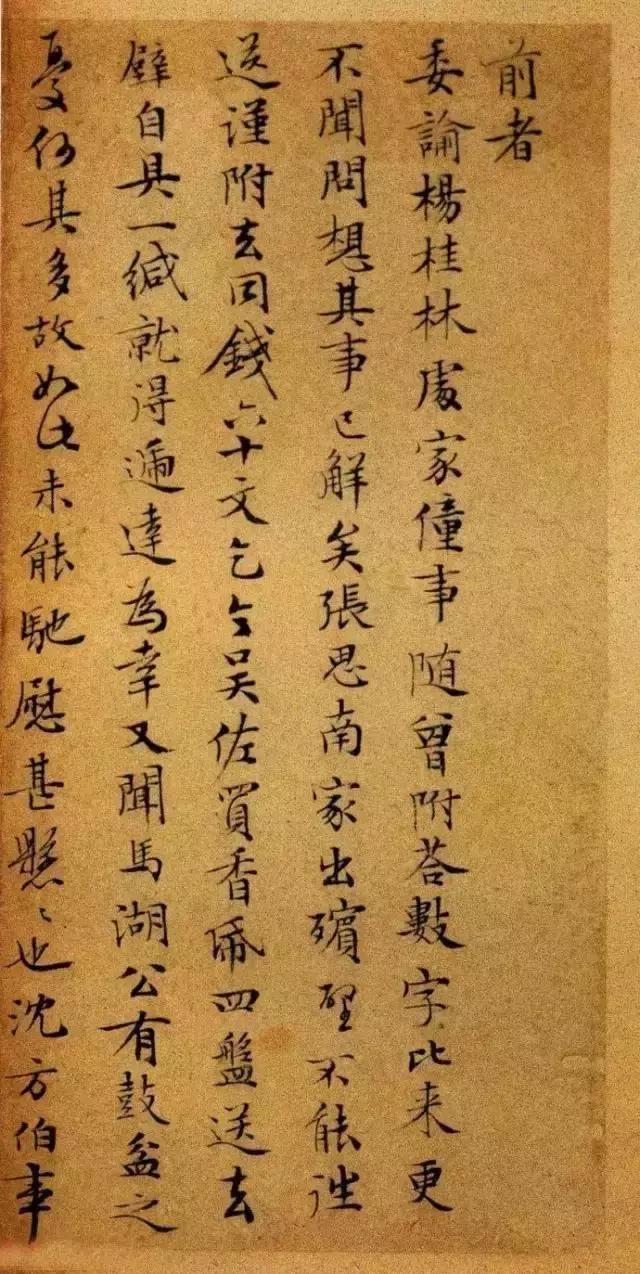 前者
委論楊桂林處家僮事随曾附荅數字比来更
不聞問想其事已解矣張思南家出殯壁不能往
送謹附去同錢六十文乞令吴佐買香帋四盤送去
壁自具一緘就得遞達為幸又聞馬湖公有鼓盆之
憂何其多故如此未能馳慰甚懸〻也沈方伯事